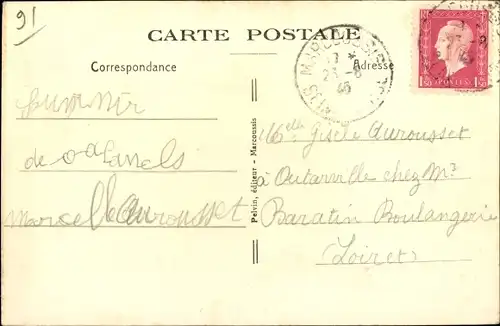 91
CARTE POSTALE
Correspondance
Adresse
MARCOUSSIS
17 *
23-8
45
POSTES
1F50 1F50
Souvenir
de
Marcelle Aurousset
Pelvin, éditeur - Marcoussis
Melle Gisèle Aurousset
à Outarville chez Mr
Baratin Boulangerie
Loiret